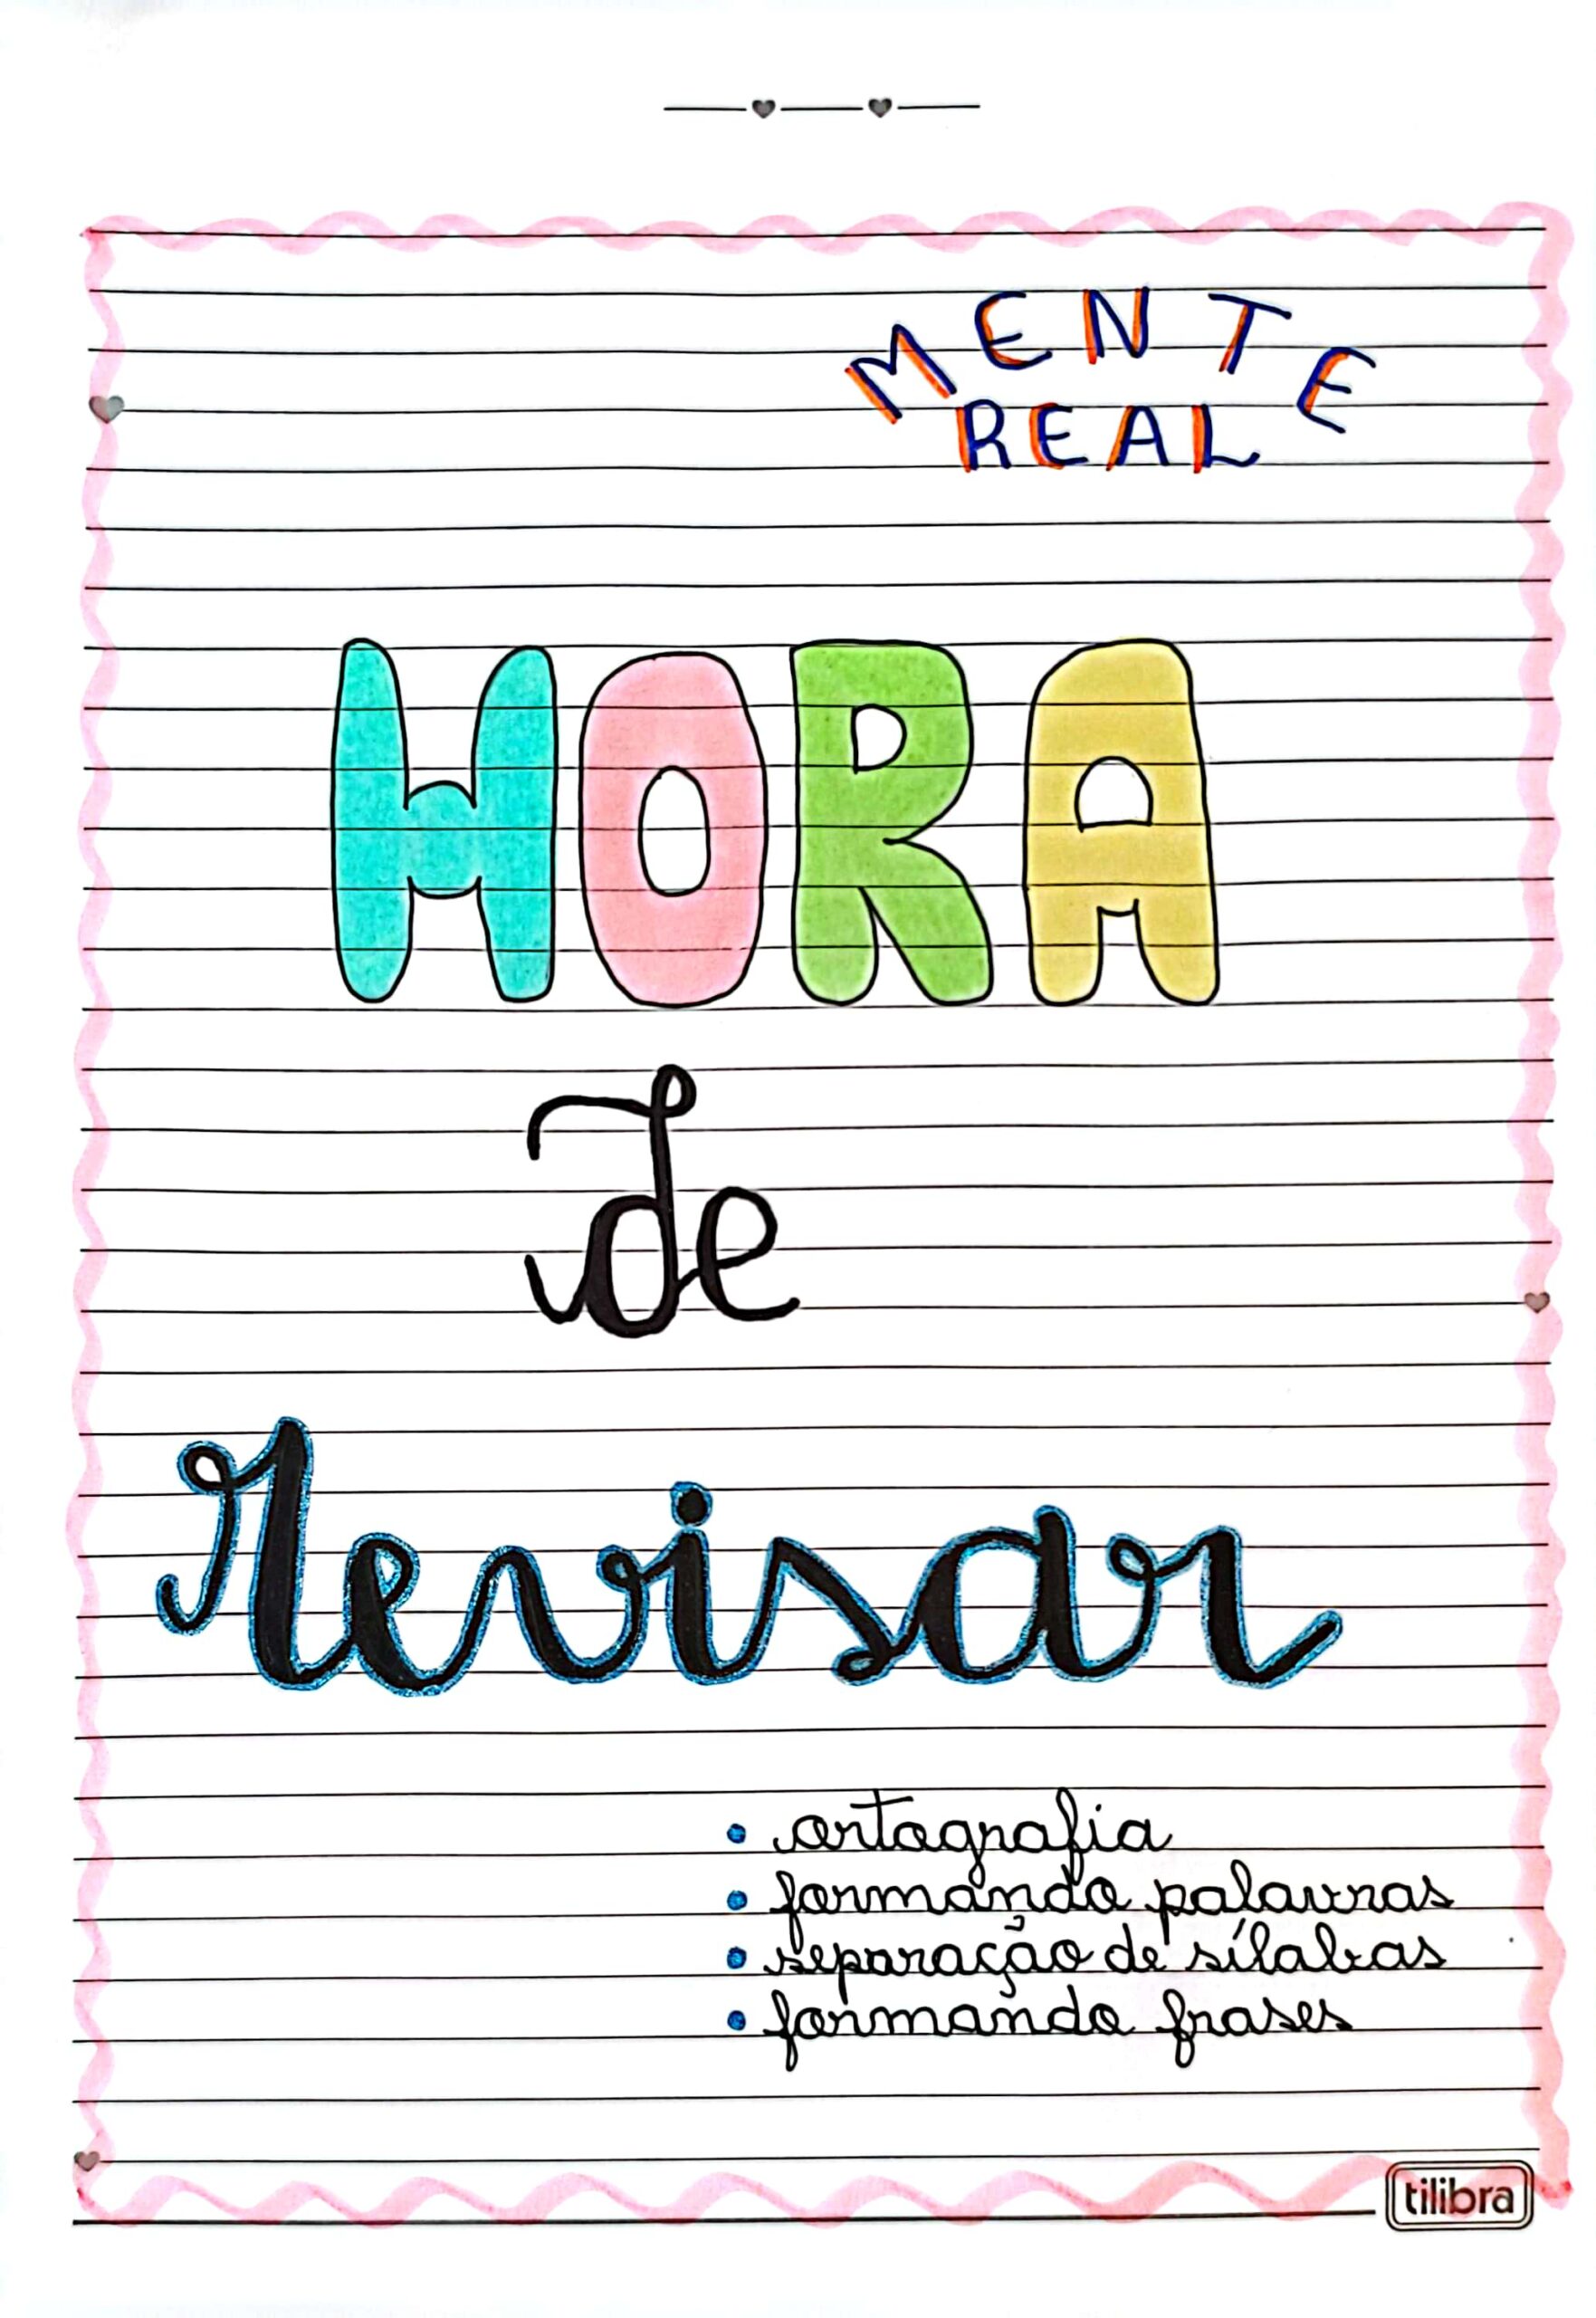 MENTE
REAL
HORA
de
revisar
• ortografia
• formando palavras
• separação de sílabas
• formando frases
tilibra